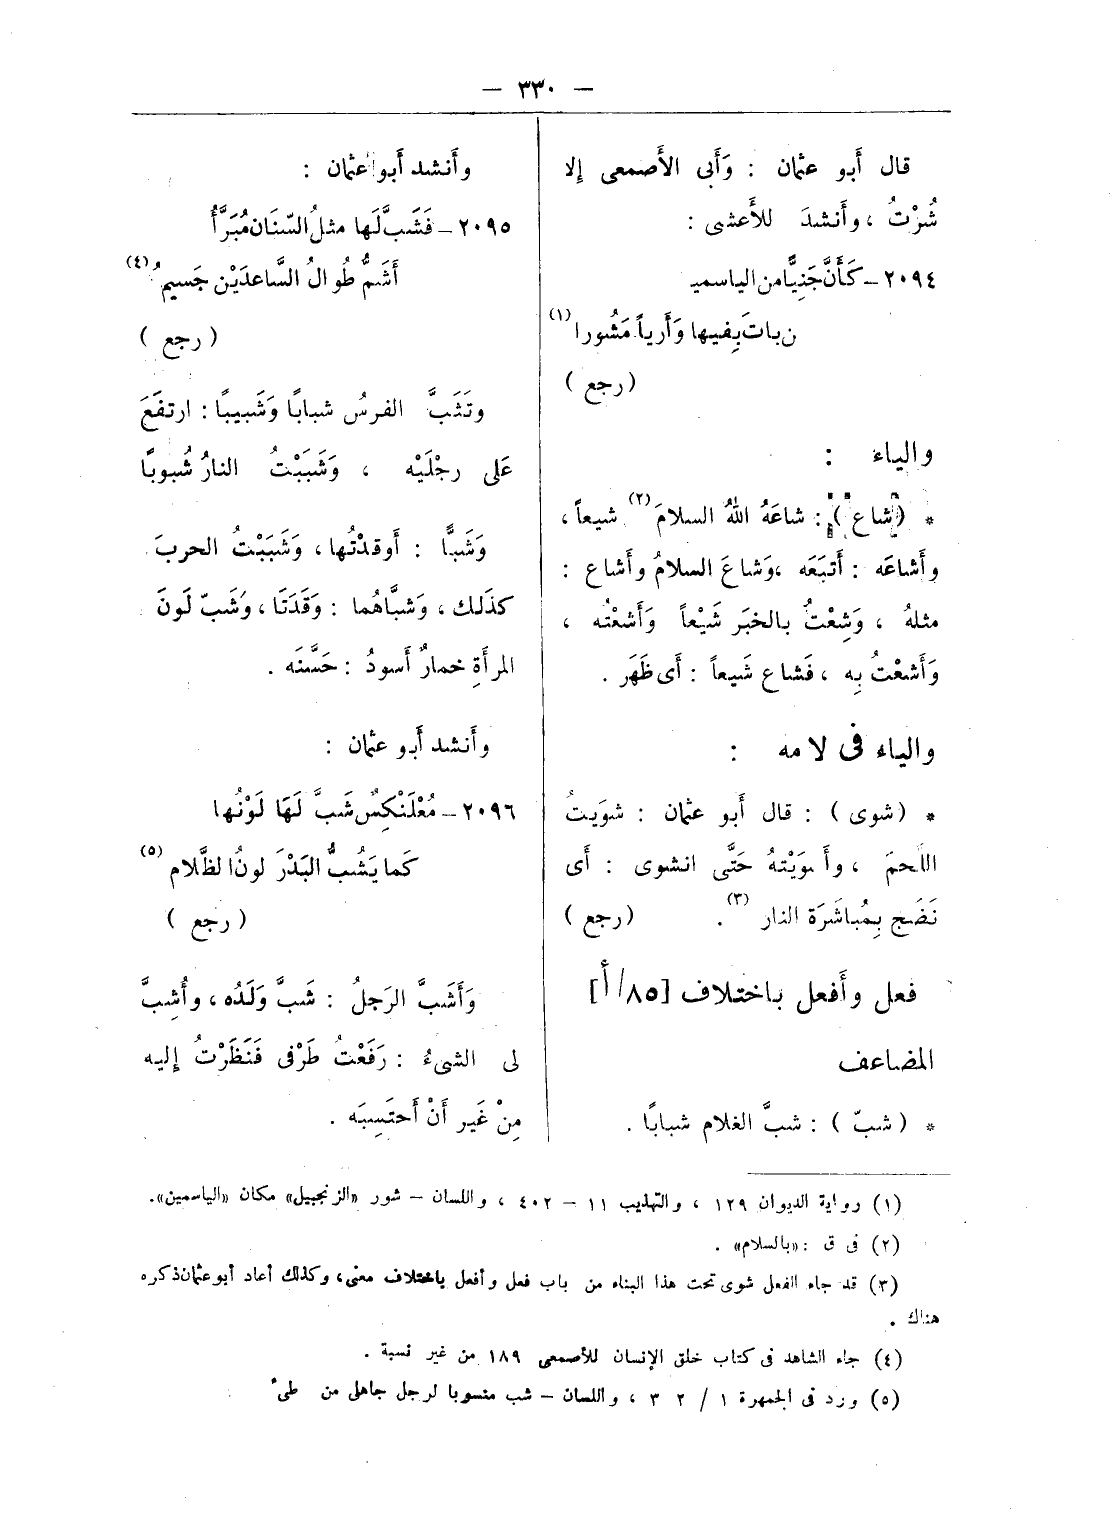 — ٣٣٠ —
قال أَبو عثمان : وَأَبى الأَصمعى إلا
شُرْتُ ، وأَنشدَ للأَعشى :
٢٠٩٤ – كَأَنَّ جَنِيًّا من الياسميـ
ن باتَ بِفيها وَأَرياً مَشُورا (١)
( رجع )
والياء :
* (شاع) : شاعَهُ اللهُ السلامَ (٢) شيعاً ،
وأَشاعَه : أَتبَعَه ، وَشاعَ السلامُ وأَشاع :
مثلهُ ، وَشِعْتُ بالخبَر شَيْعاً وَأَشعْتُه ،
وَأَشعْتُ بِه ، فَشاع شَيعاً : أَى ظَهَر .
والياء فى لامه :
* ( شوى ) : قال أَبو عثمان : شوَيتُ
اللَّحمَ ، وأَشوَيْتهُ حَتَّى انشوى : أَى
نَضَج بِمُباشَرَة النار (٣) . ( رجع )
فعل وأَفعل باختلاف [٨٥/ أ]
المضاعف
* ( شبّ ) : شبَّ الغلام شبابًا .
وأَنشد أَبو عثمان :
٢٠٩٥ – فَشَبَّ لَها مثلُ السّنَان مُبَرَّأُ
أَشَمُّ طُوالُ السَّاعدَيْن جَسيمُ (٤)
( رجع )
وتَثَبَّ الفرسُ شبابًا وَشَبيبًا : ارتفَعَ
عَلى رجْلَيْه ، وَشَبَبْتُ النارُ شُبوبًا
وَشَبًّا : أَوقدْتُها ، وَشَبَبْتُ الحربَ
كذَلك ، وَشبَّاهُما : وَقَدَتَا ، وَشَبّ لَونَ
المرأَةِ خمارٌ أَسودُ : حَسَّنَه .
وأَنشد أَبو عثمان :
٢٠٩٦ – مُعْلَنْكِسٌ شَبَّ لَهَا لَوْنُها
كَما يَشُبُّ البَدْرَ لونُ الظَّلام (٥)
( رجع )
وَأَشَبَّ الرَجلُ : شَبَّ وَلَدُه ، وأُشِبَّ
لى الشىءُ : رَفَعْتُ طَرْفى فَنَظَرْتُ إِليه
مِنْ غَير أَنْ أَحتَسِبَه .
(١) رواية الديوان ١٢٩ ، والتهذيب ١١ – ٤٠٢ ، واللسان – شور «الزنجبيل» مكان «الياسمين».
(٢) فى ق : «بالسلام» .
(٣) قد جاء الفعل شوى تحت هذا البناء من باب فعل وأفعل باختلاف معنى، وكذلك أعاد أبو عثمان ذكره
هناك .
(٤) جاء الشاهد فى كتاب خلق الإنسان للأصمعى ١٨٩ من غير نسبة .
(٥) ورد فى الجمهرة ١ / ٢ ٣ ، واللسان – شب منسوبا لرجل جاهلى من طىء